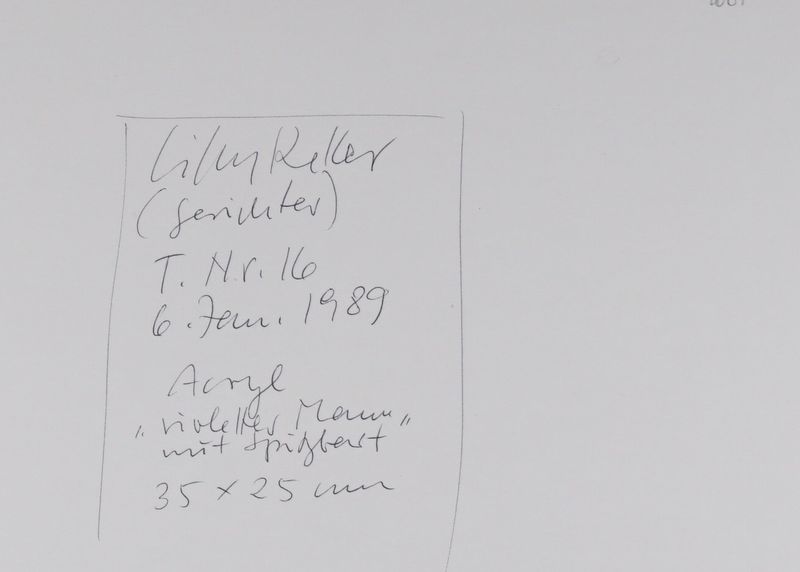 Lilly Keller
(Gesichter)
T. Nr. 16
6. Jan. 1989
Acryl
„violetter Mann"
mit Spitzbart
35 x 25 cm